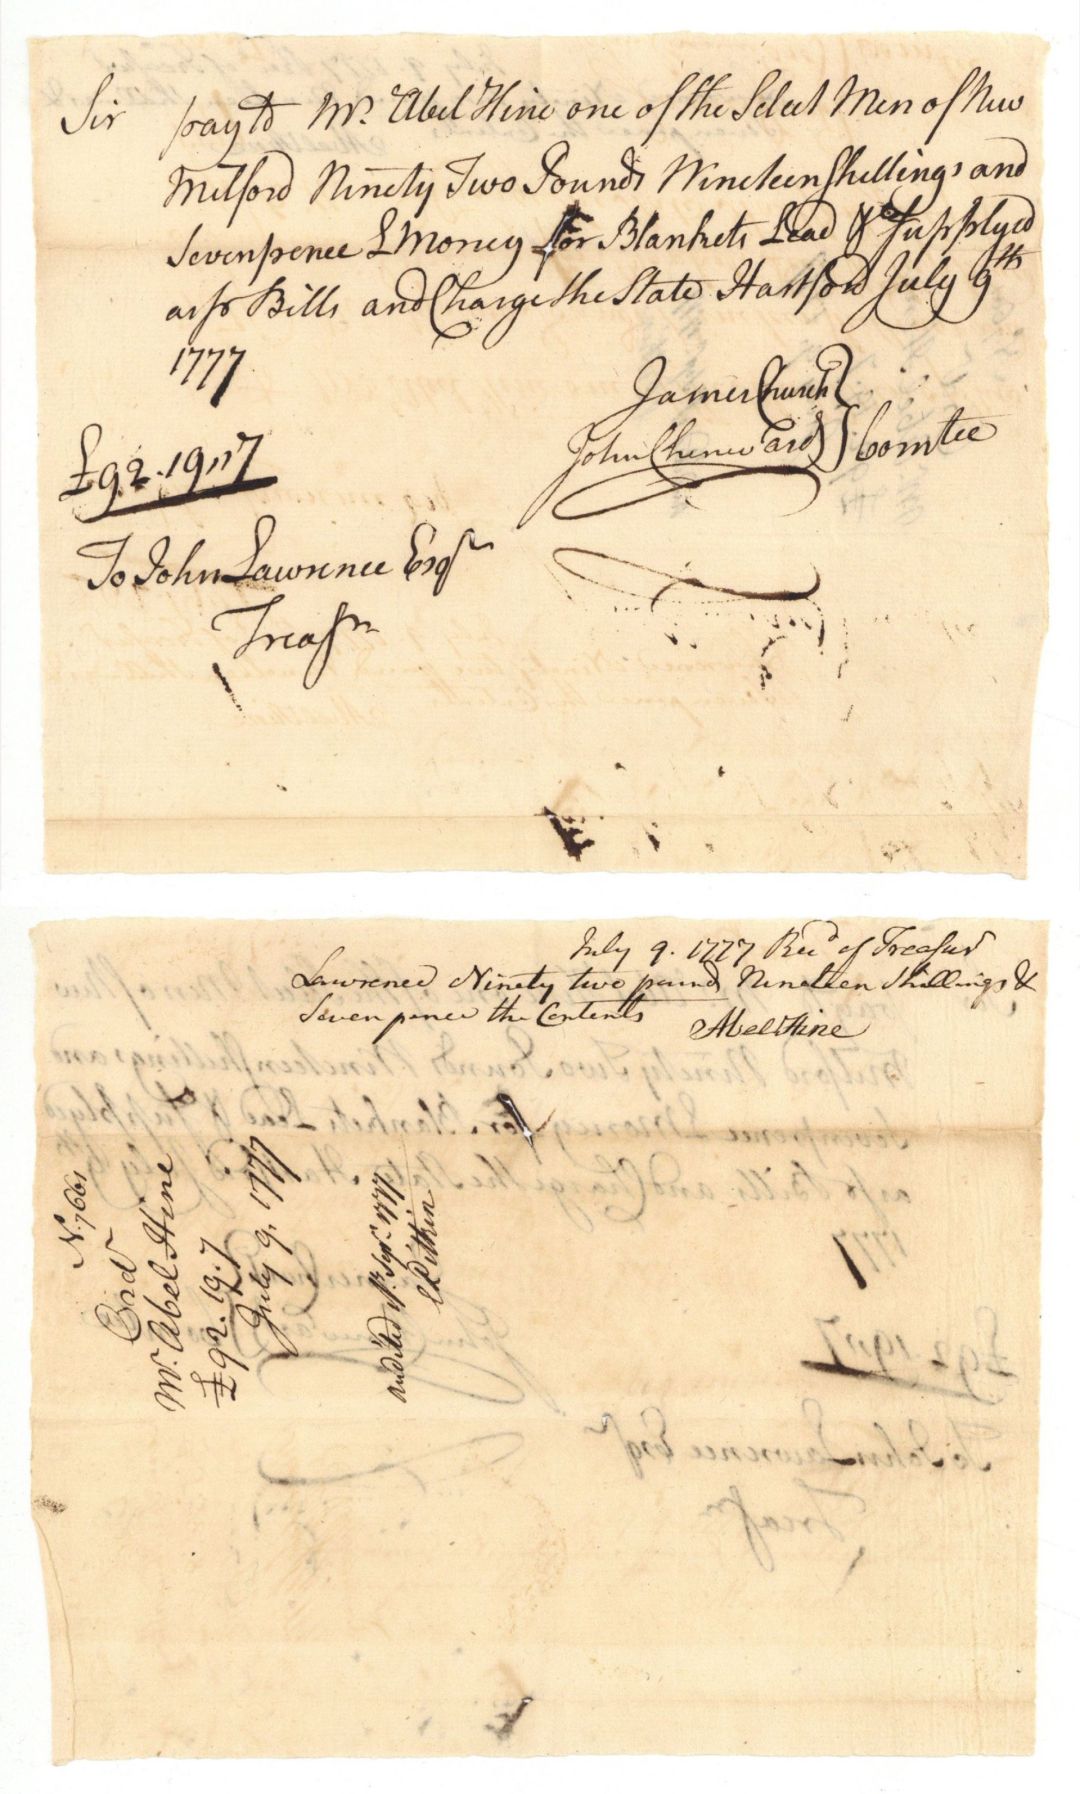 Sir pay to Mr. Abel Hine one of the Select Men of New
Milford Ninety Two Pounds Nineteen Shillings and
Sevenpence L Money for Blankets Lead & Supplyed
as pr Bills and Charge the State Hartford July 9th
1777
James Church
John Chenevard Comtee
£92.19.7
To John Lawrence Esqr
Treasr
July 9. 1777 Recd of Treasurr
Lawrence Ninety two pounds Nineteen Shillings &
Seven pence the Contents
Abel Hine
N. 7661
Ord
Mr. Abel Hine
£92.19.7
July 9. 1777
audited Sepr. 1777
Pitkin